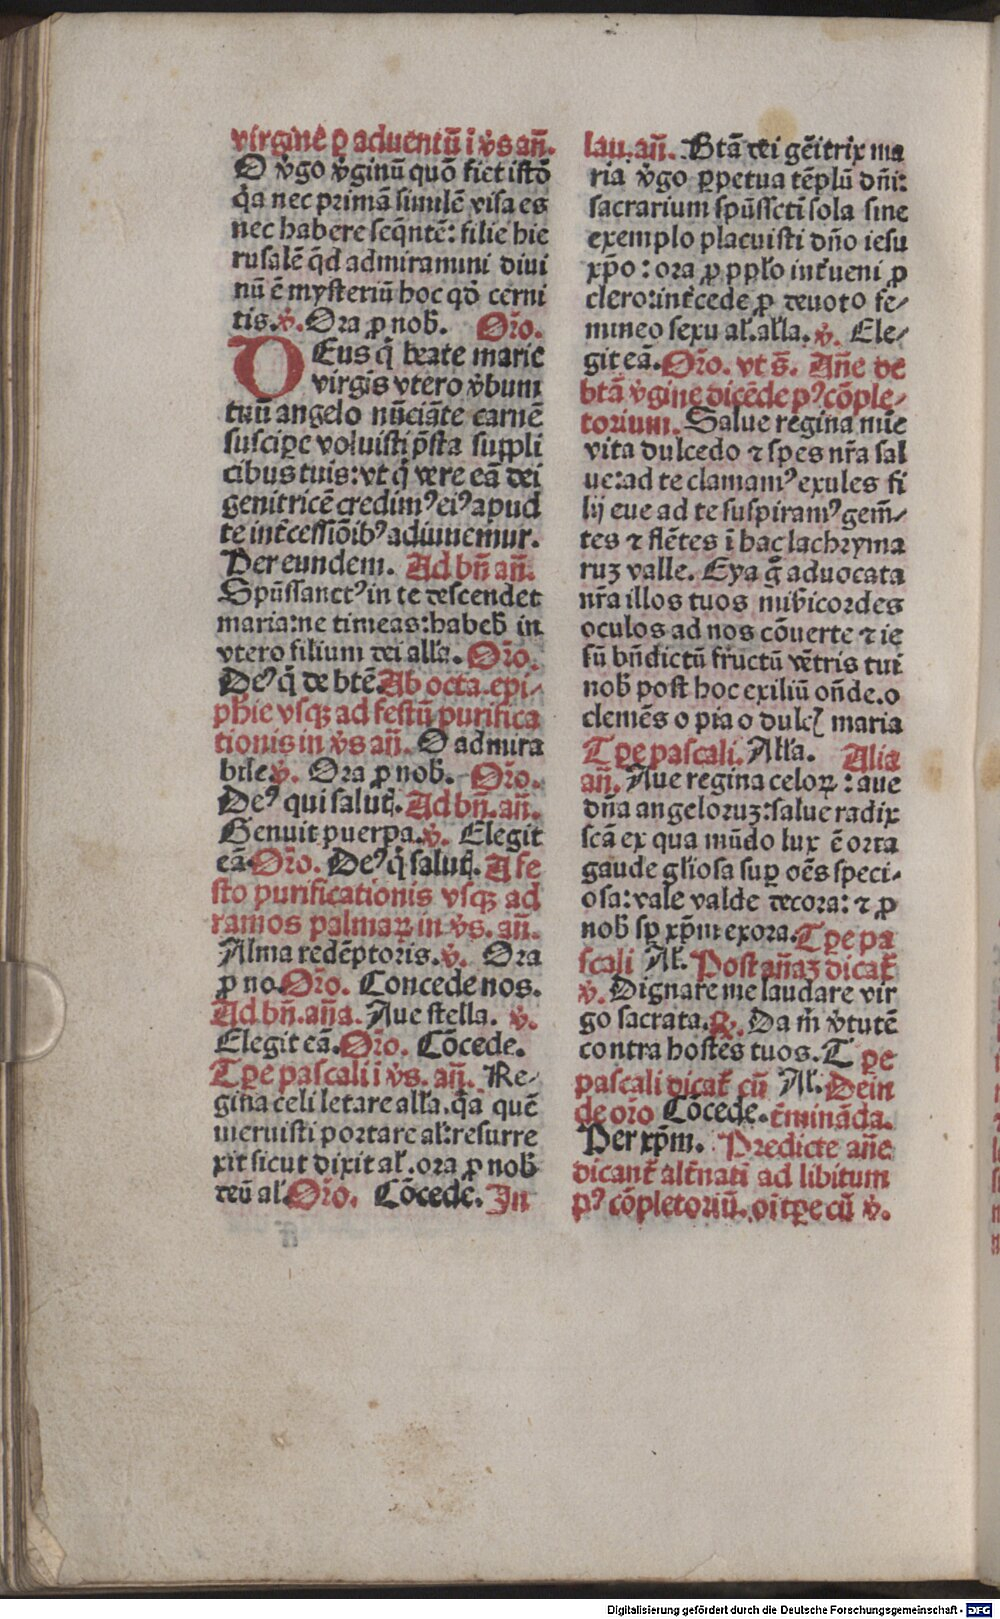 virginē ꝑ aduentū i v̄s an̄.
O v̄go v̄ginū quō fiet istō
q̄a nec primā similē visa es
nec habere seq̄ntē: filie hie
rusalē q̄d admiramini diui
nū ē mysteriū hoc qō cerni
tis. v̄. Ora ꝓ nob̄. Orō.
DEus q̄ beate marie
virgīs vtero v̄bum
tuū angelo nūciāte carnē
suscipe voluisti p̄sta suppli
cibus tuis: vt q̄ vere eā dei
genitricē credimꝰ eiꝰ apud
te int̄cessiōibꝰ adiuuemur.
Per eundem. Ad bn̄ an̄.
Spūssanctꝰ in te descendet
maria: ne timeas: habeb̄ in
vtero filium dei alla. Orō.
Deꝰ q̄ de btē Ab octa. epi-
phie vsqꝫ ad festū purifica
tionis in v̄s an̄. O admira
bile v̄. Ora ꝓ nob̄. Orō.
Deꝰ qui saluť. Ad bn̄. an̄.
Genuit puerpa. v̄. Elegit
eā. Orō. Deꝰ q̄ saluť. A fe
sto purificationis vsqꝫ ad
ramos palmaꝝ in v̄s. an̄.
Alma redēptoris. v̄. Ora
ꝓ no. Orō. Concede nos.
Ad bn̄. an̄a. Aue stella. v̄.
Elegit eā. Orō. Cōcede.
Tꝑe pascali i v̄s. an̄. Re-
gina celi letare alľa. q̄a quē
meruisti portare aľ: resurre
xit sicut dixit aľ. ora ꝓ nob̄
deū aľ. Orō. Cōcede. In
lau. an̄. Btā dei gēitrix ma
ria v̄go ꝑpetua tēplū dn̄i:
sacrarium spūsscti sola sine
exemplo placuisti dn̄o iesu
xp̄o: ora ꝓ pplo int̄ueni ꝓ
clero: int̄cede ꝓ deuoto fe-
mineo sexu aľ. alľa. v̄. Ele-
git eā. Orō. vt s̄. Añe de
btā v̄gine dicēde pꝰ cōple-
torium. Salue regina mīe
vita dulcedo ⁊ spes nr̄a sal
ue: ad te clamamꝰ exules fi
lij eue ad te suspiramꝰ gem̄-
tes ⁊ flētes ī hac lachryma
ruꝫ valle. Eya g̊ aduocata
nr̄a illos tuos mib̄icordes
oculos ad nos cōuerte ⁊ ie
sū bn̄dictū fructū vētris tui
nob̄ post hoc exiliū on̄de. o
clemēs o pia o dulc̄ maria
Tꝑe pascali. Alľa. Alia
an̄. Aue regina celoꝝ: aue
dn̄a angeloruꝫ: salue radix
scā ex qua mūdo lux ē orta
gaude gľiosa suꝑ oēs speci-
osa: vale valde decora: ⁊ ꝓ
nob̄ sꝑ xp̄m exora. Tꝑe pa
scali Aľ. Post añaꝫ dicať
v̄. Dignare me laudare vir
go sacrata. ℟. Da m̄ v̄tutē
contra hostes tuos. Tꝑe
pascali dicať cū Aľ. Dein
de orō Cōcede. ťmināda.
Per xp̄m. Predicte an̄e
dicanť alťnati ad libitum
pꝰ cōpletoriū. oi tꝑe cū v̄.
Digitalisierung gefördert durch die Deutsche Forschungsgemeinschaft - DFG